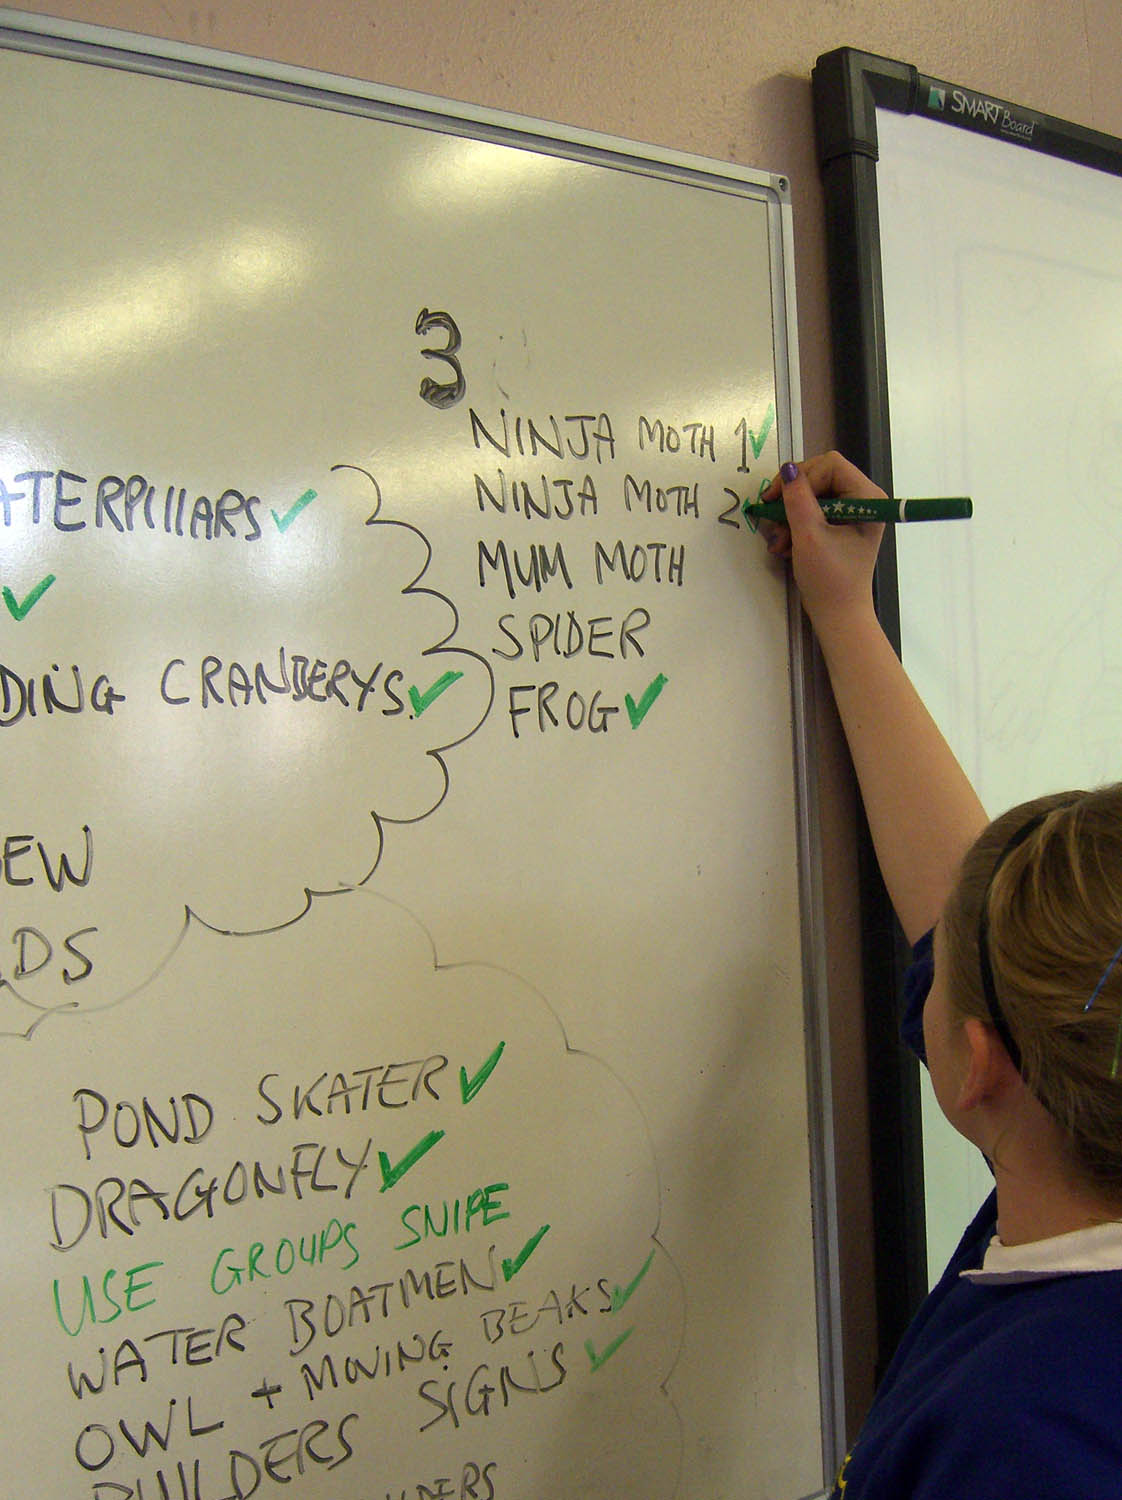 SMART Board
3
NINJA MOTH 1
NINJA MOTH 2
MUM MOTH
SPIDER
FROG
ATERPIllARS
DING CRANBERYS.
EW
DS
POND SKATER
DRAGONFLY
USE GROUPS SNIPE
WATER BOATMEN
OWL + MOVING BEAKS
BUILDERS SIGNS